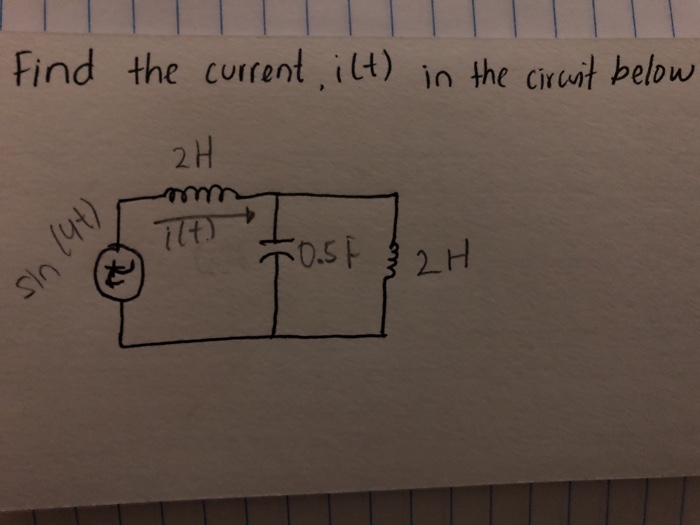 Find the current, i(t) in the circuit below
2H
sin(4t)
i(t)
0.5F
2H